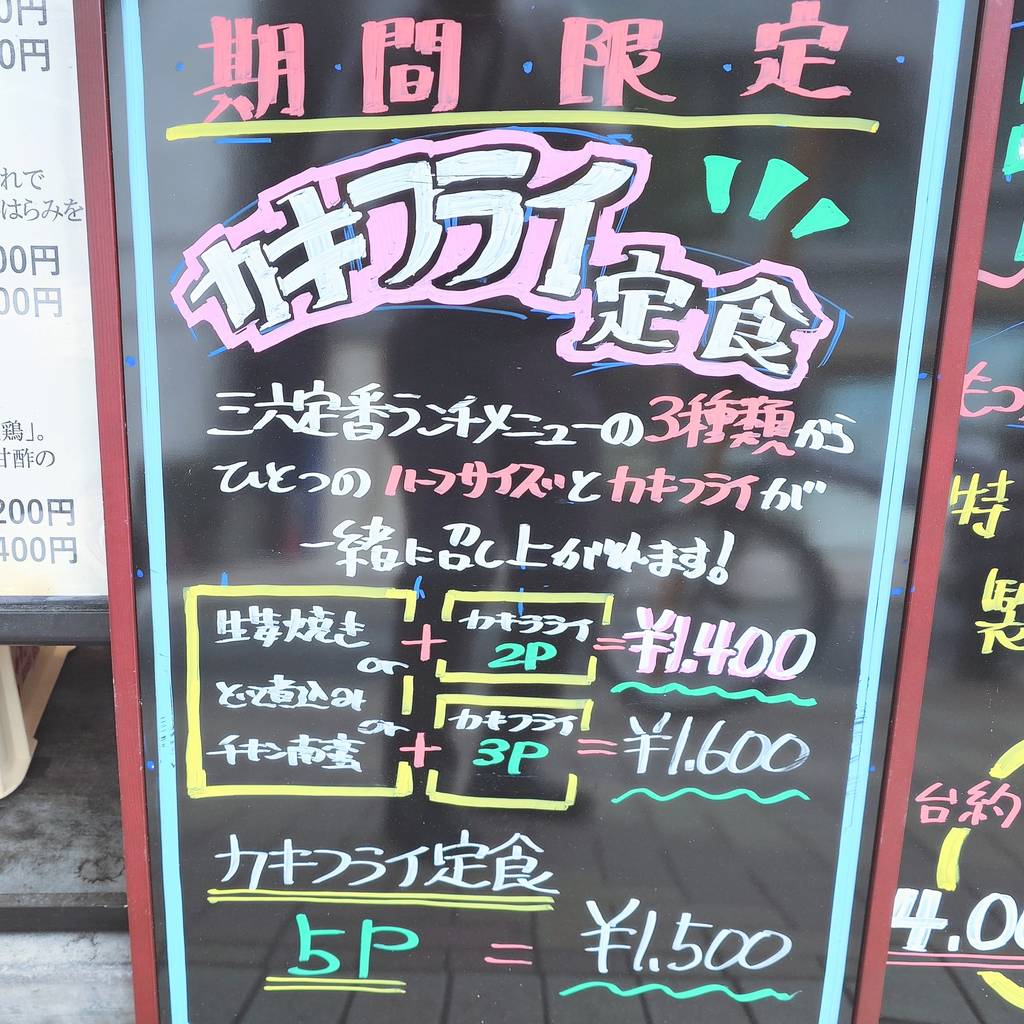 期・間・限・定
カキフライ
定食
三六定番ランチメニューの3種類から
ひとつのハーフサイズとカキフライが
一緒に召し上がれます!
生姜焼き
or
もつ煮込み
or
チキン南蛮
+ カキフライ 2P = ¥1.400
+ カキフライ 3P = ¥1.600
カキフライ定食
5P = ¥1.500
0円
0円
れで
はらみを
00円
00円
鶏」。
甘酢の
200円
400円
もつ
特
製
台約
4.0